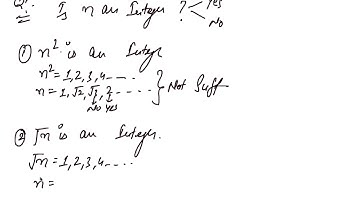 Q:- Is n an Integer ? Yes
No
① n² is an Integer
n² = 1,2,3,4----
n = 1,√2,√3,2----- } Not Suff
No Yes
② √n is an Integer.
√n = 1,2,3,4-----
n =